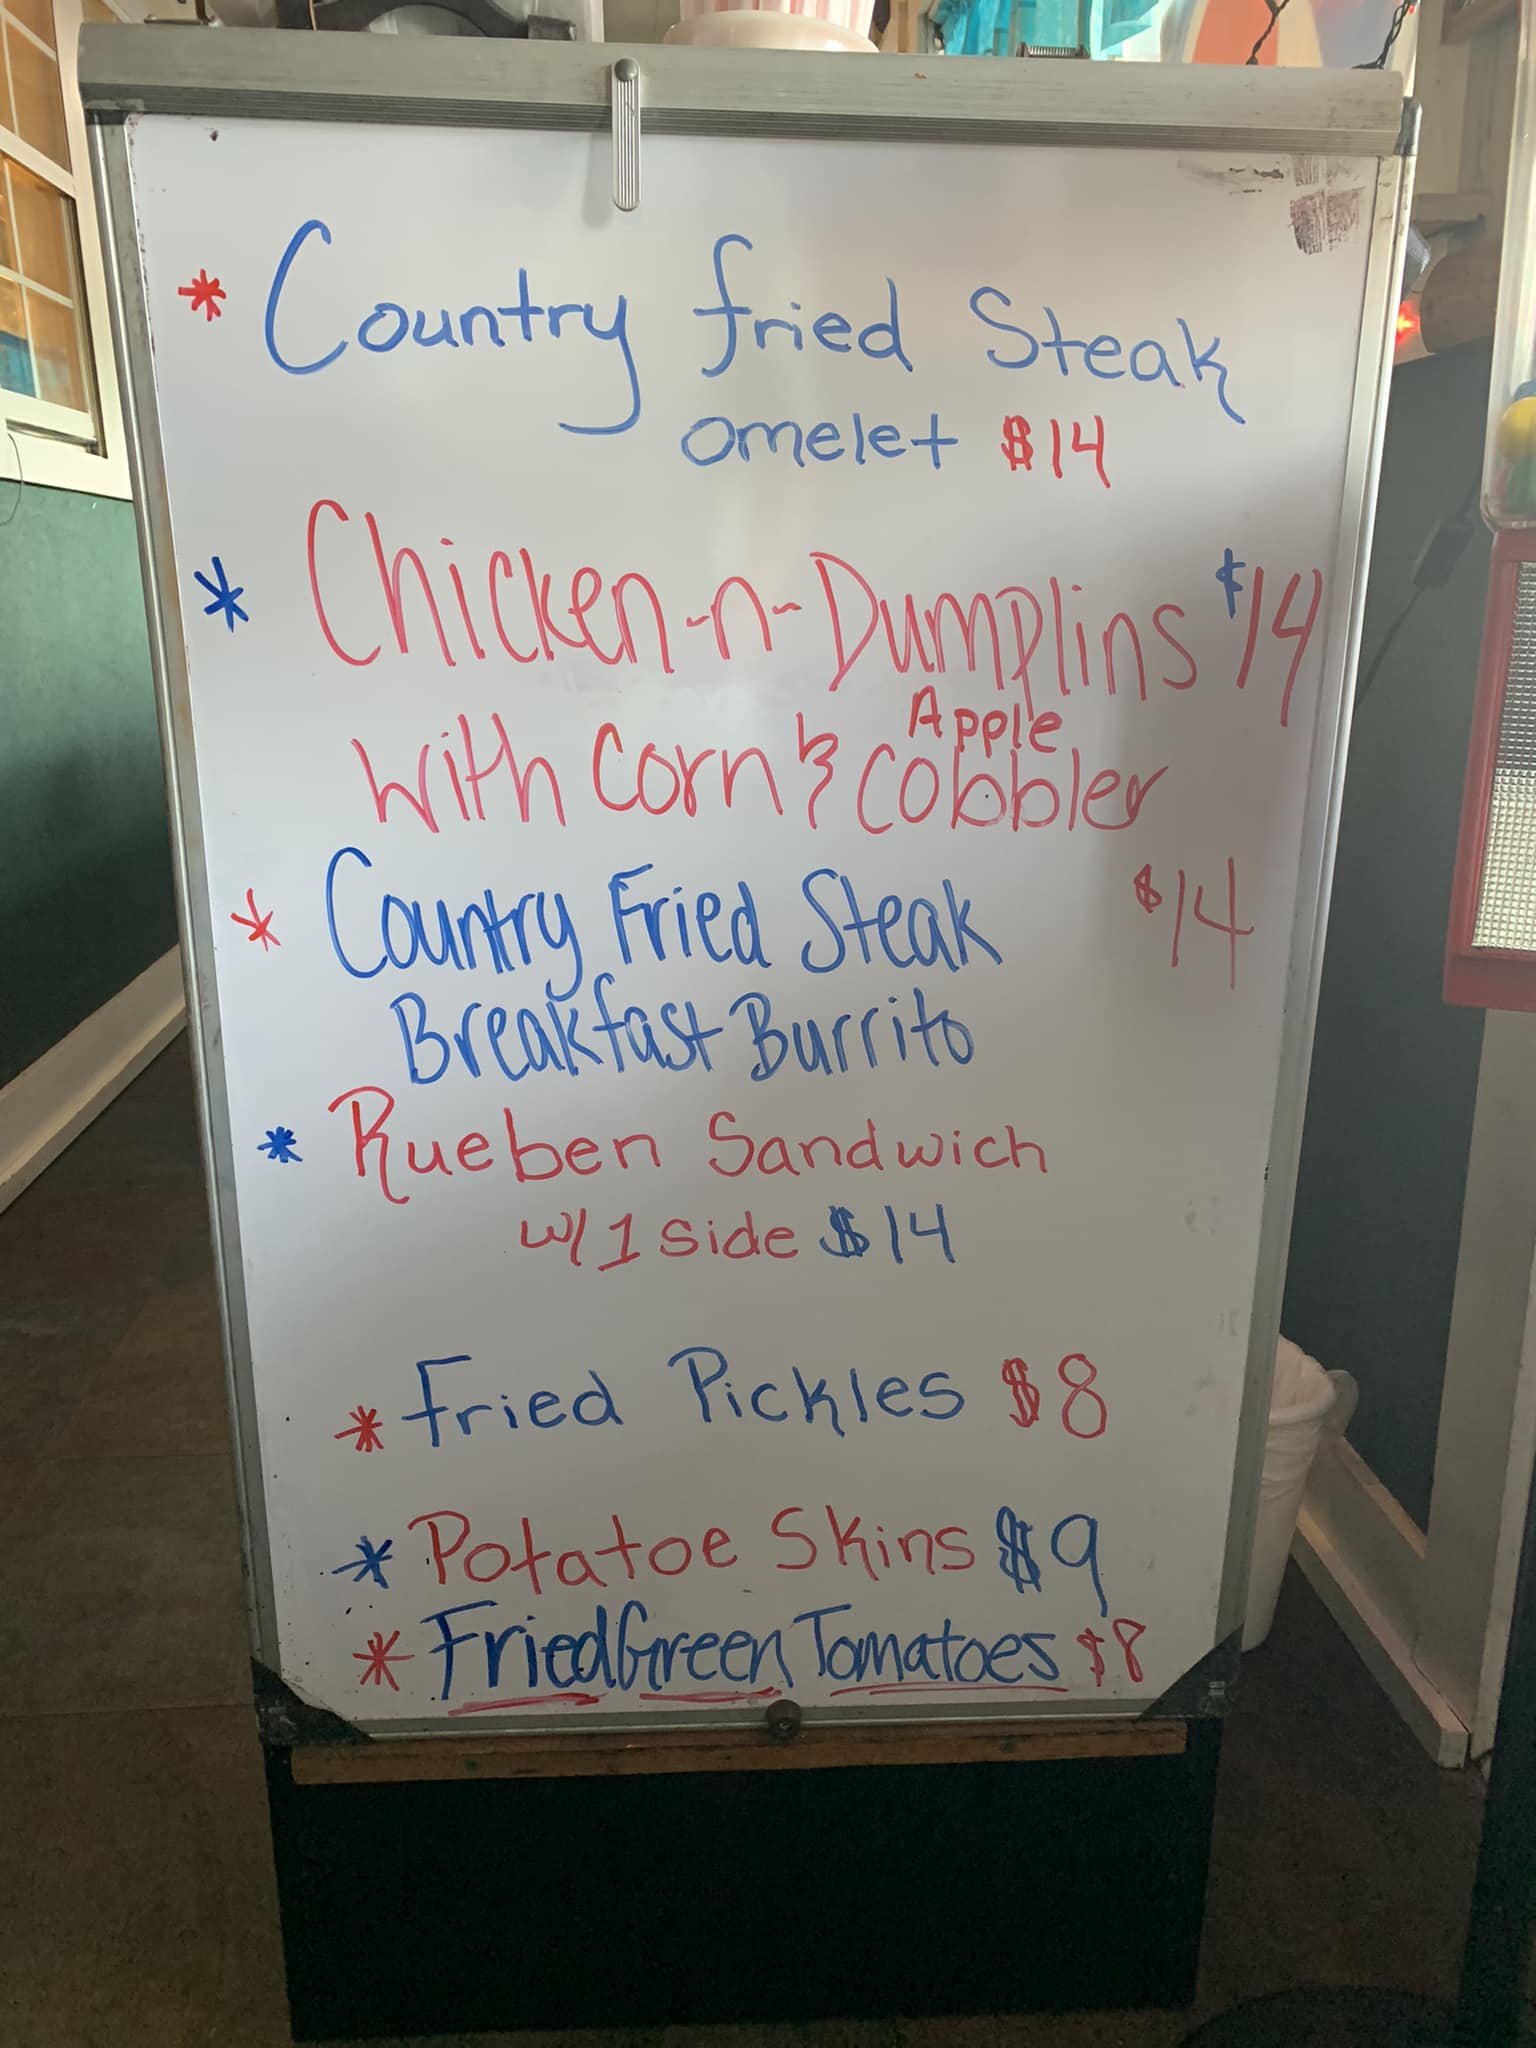 * Country fried Steak
omelet $14
* Chicken-n-Dumplins $14
with Corn & Apple Cobbler
* Country Fried Steak $14
Breakfast Burrito
* Rueben Sandwich
w/1 side $14
* Fried Pickles $8
* Potatoe Skins $9
* Fried Green Tomatoes $8